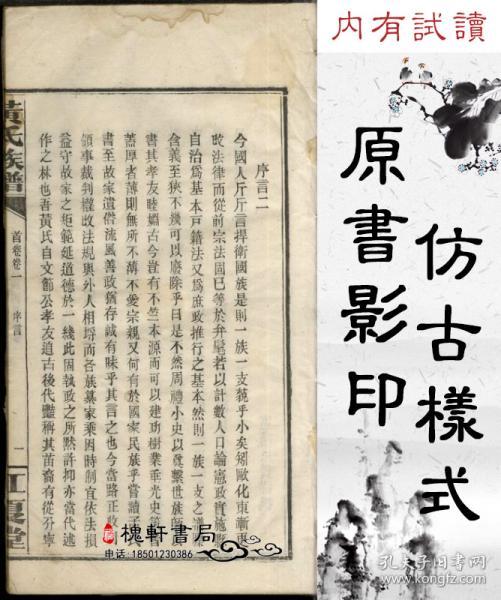 內有試讀
原書影印
仿古樣式
黃氏族譜
首卷卷一
序言
一
江夏堂
序言二
今國人斤斤言捍衛國族是則一族一支藐乎小矣矧歐化東漸
改法律而從前宗法固已等於弁髦若以計數人口論憲實施
自治爲基本戶籍法又爲庶政推行之基本然則一族一支之
含義至狹不幾可以廢除乎曰是不然周禮小史以奠繫世族師
書其孝友睦婣古今豈有不竺本源而可以建功樹業垂光史
蓋厚者薄則無所不薄不愛宗親又何有於國家民族乎嘗讀
書至故家遺俗流風善政猶存誠有味乎其言之也今當路正
領事裁判權改法規與外人相埒而各族纂家乘因時制宜依法損
益守故家之矩範延道德於一綫此固執政之所默許抑亦當代述
作之林也吾黃氏自文節公孝友追古後代豔稱其苗裔有從分寧
槐軒書局
电话:18501230386
孔夫子旧书网
www.kongfz.com